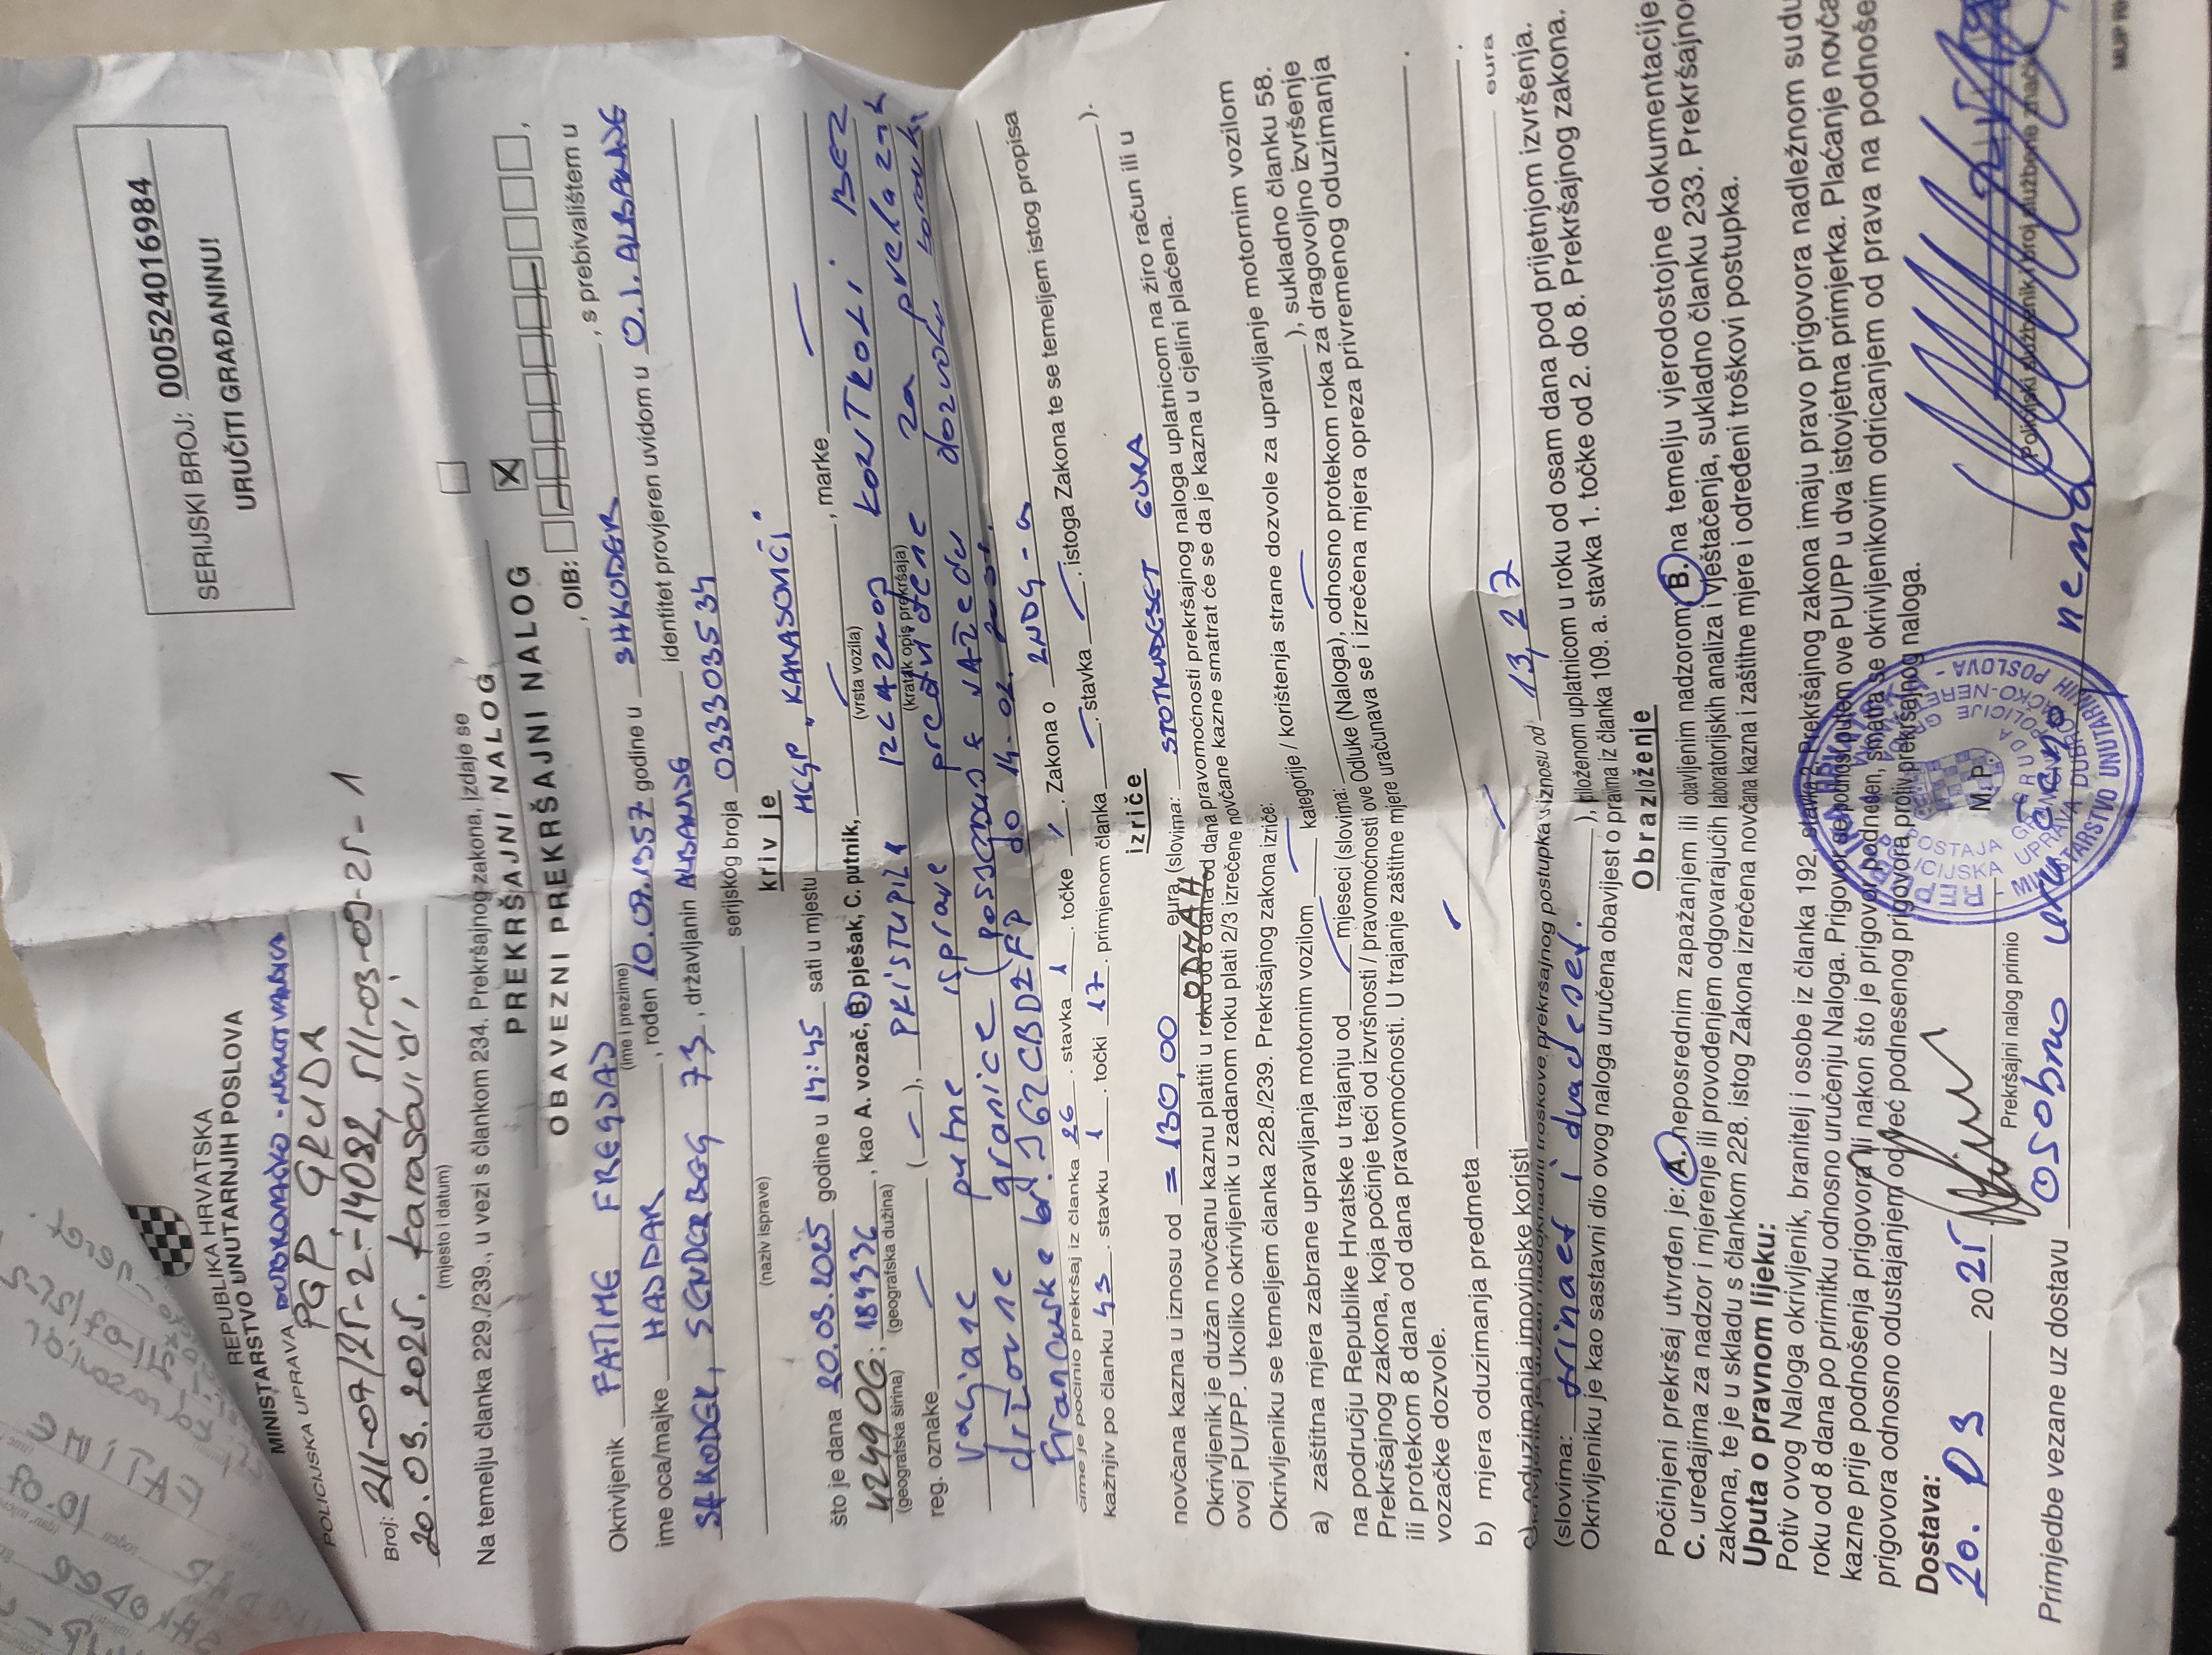 SERIJSKI BROJ: 0005240016984
URUČITI GRAĐANINU!
REPUBLIKA HRVATSKA
MINISTARSTVO UNUTARNJIH POSLOVA
POLICIJSKA UPRAVA DUBROVAČKO-NERETVANSKA
PGP GRUDA
Broj: 211-07/25-2-14082, 511-03-09-25-1
20.03.2025. Karasovići
(mjesto i datum)
Na temelju članka 229./239., u vezi s člankom 234. Prekršajnog zakona, izdaje se
PREKRŠAJNI NALOG
OBAVEZNI PREKRŠAJNI NALOG X
Okrivljenik FATIME FREGJAJ, OIB:
(ime i prezime)
ime oca/majke HAJDAR, rođen 10.07.1957 godine u SHKODER, s prebivalištem u
SHKODER, SENDERBEG 73, državljanin ALBANIJE identitet provjeren uvidom u O.I. ALBANIJE
(naziv isprave) serijskog broja 033303534
kriv je
što je dana 20.03.2025 godine u 14:45 sati u mjestu MCGP „KARASOVIĆI"
42499OG; 184936, kao A. vozač, B. pješak, C. putnik, , marke
(geografska širina) (geografska dužina) (vrsta vozila)
reg. oznake (–), PRISTUPILA IZLAZNOJ KONTROLI BEZ
(kratak opis prekršaja)
valjane putne isprave predviđene za prelazak
državne granice (posjeduje važeću dozvolu boravka
Francuske br. J62CBD2FP do 14.02.
čime je počinio prekršaj iz članka 26. stavka 1. točke . Zakona o ZNDG-a
kažnjiv po članku 43. stavku 1. točki 17. primjenom članka . stavka . istoga Zakona te se temeljem istog propisa
izriče
novčana kazna u iznosu od =130,00 eura (slovima: STOTRIDESET EURA
Okrivljenik je dužan novčanu kaznu platiti u roku od 8 dana od dana pravomoćnosti prekršajnog naloga uplatnicom na žiro račun ili u
ODMAH
ovoj PU/PP. Ukoliko okrivljenik u zadanom roku plati 2/3 izrečene novčane kazne smatrat će se da je kazna u cjelini plaćena.
Okrivljeniku se temeljem članka 228./239. Prekršajnog zakona izriče:
a) zaštitna mjera zabrane upravljanja motornim vozilom kategorije / korištenja strane dozvole za upravljanje motornim vozilom
na području Republike Hrvatske u trajanju od mjeseci (slovima: ), sukladno članku 58.
Prekršajnog zakona, koja počinje teći od izvršnosti / pravomoćnosti ove Odluke (Naloga), odnosno protekom roka za dragovoljno izvršenje
ili protekom 8 dana od dana pravomoćnosti. U trajanje zaštitne mjere uračunava se i izrečena mjera opreza privremenog oduzimanja
vozačke dozvole.
b) mjera oduzimanja predmeta
c) oduzimanja imovinske koristi eura
Okrivljenik je dužan nadoknaditi troškove prekršajnog postupka u iznosu od 13,27
(slovima: trinaest i dvadeset. ), priloženom uplatnicom u roku od osam dana pod prijetnjom izvršenja.
Okrivljeniku je kao sastavni dio ovog naloga uručena obavijest o pravima iz članka 109. a. stavka 1. točke od 2. do 8. Prekršajnog zakona.
Obrazloženje
Počinjeni prekršaj utvrđen je: A. neposrednim zapažanjem ili obavljenim nadzorom; B. na temelju vjerodostojne dokumentacije
C. uređajima za nadzor i mjerenje ili provođenjem odgovarajućih laboratorijskih analiza i vještačenja, sukladno članku 233. Prekršajno
zakona, te je u skladu s člankom 228. istog Zakona izrečena novčana kazna i zaštitne mjere i određeni troškovi postupka.
Uputa o pravnom lijeku:
Potiv ovog Naloga okrivljenik, branitelj i osobe iz članka 192. stavka 2. Prekršajnog zakona imaju pravo prigovora nadležnom sudu
roku od 8 dana po primitku odnosno uručenju Naloga. Prigovor se podnosi putem ove PU/PP u dva istovjetna primjerka. Plaćanje novča
kazne prije podnošenja prigovora ili nakon što je prigovor podneden, smatra se okrivljenikovim odricanjem od prava na podnoše
prigovora odnosno odustajanjem od već podnesenog prigovora protiv prekršajnog naloga.
Dostava:
20. 03 2025
Prekršajni nalog primio
M.P.
Policijski službenik i broj službene značke
Primjedbe vezane uz dostavu osobno uručeno nema
MUP RH